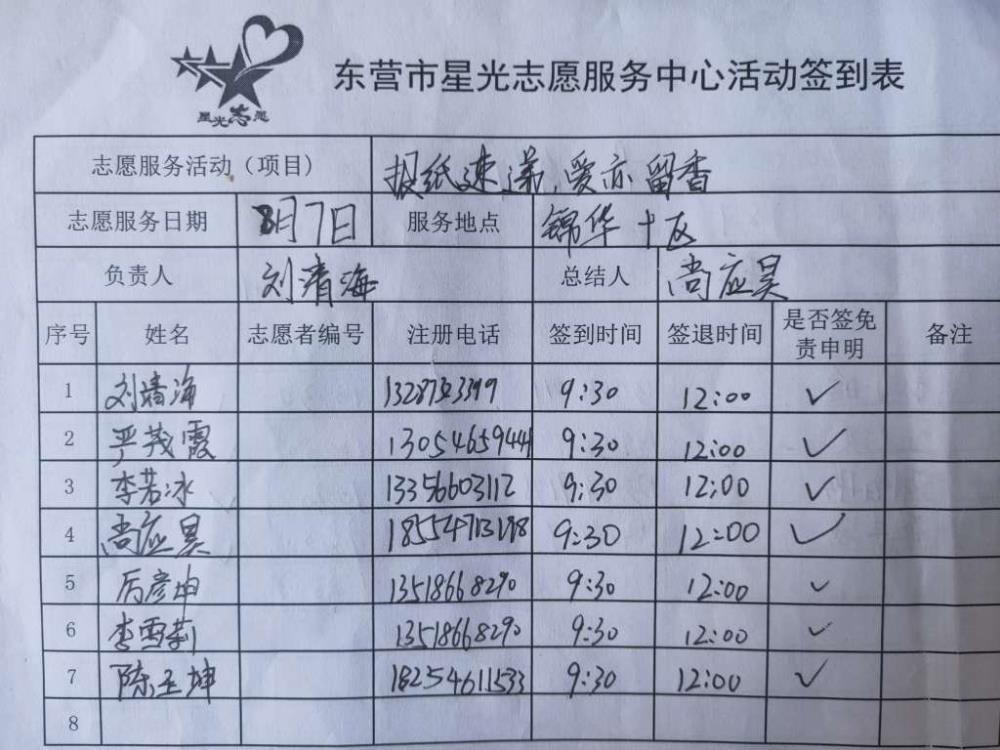 星光志愿
东营市星光志愿服务中心活动签到表
志愿服务活动（项目） 报纸速递，爱亦留香
志愿服务日期 8月7日 服务地点 锦华十区
负责人 刘清海 总结人 尚应昊
序号 姓名 志愿者编号 注册电话 签到时间 签退时间 是否签免责申明 备注
1 刘清海 9:30 12:00 ✓
2 严茂霞 13054659444 9:30 12:00 ✓
3 李若冰 13356603112 9:30 12:00 ✓
4 尚应昊 18554713198 9:30 12:00 ✓
5 厉彦坤 13518668290 9:30 12:00 ✓
6 李雪莉 13518668290 9:30 12:00 ✓
7 陈玉坤 18254611533 9:30 12:00 ✓
8